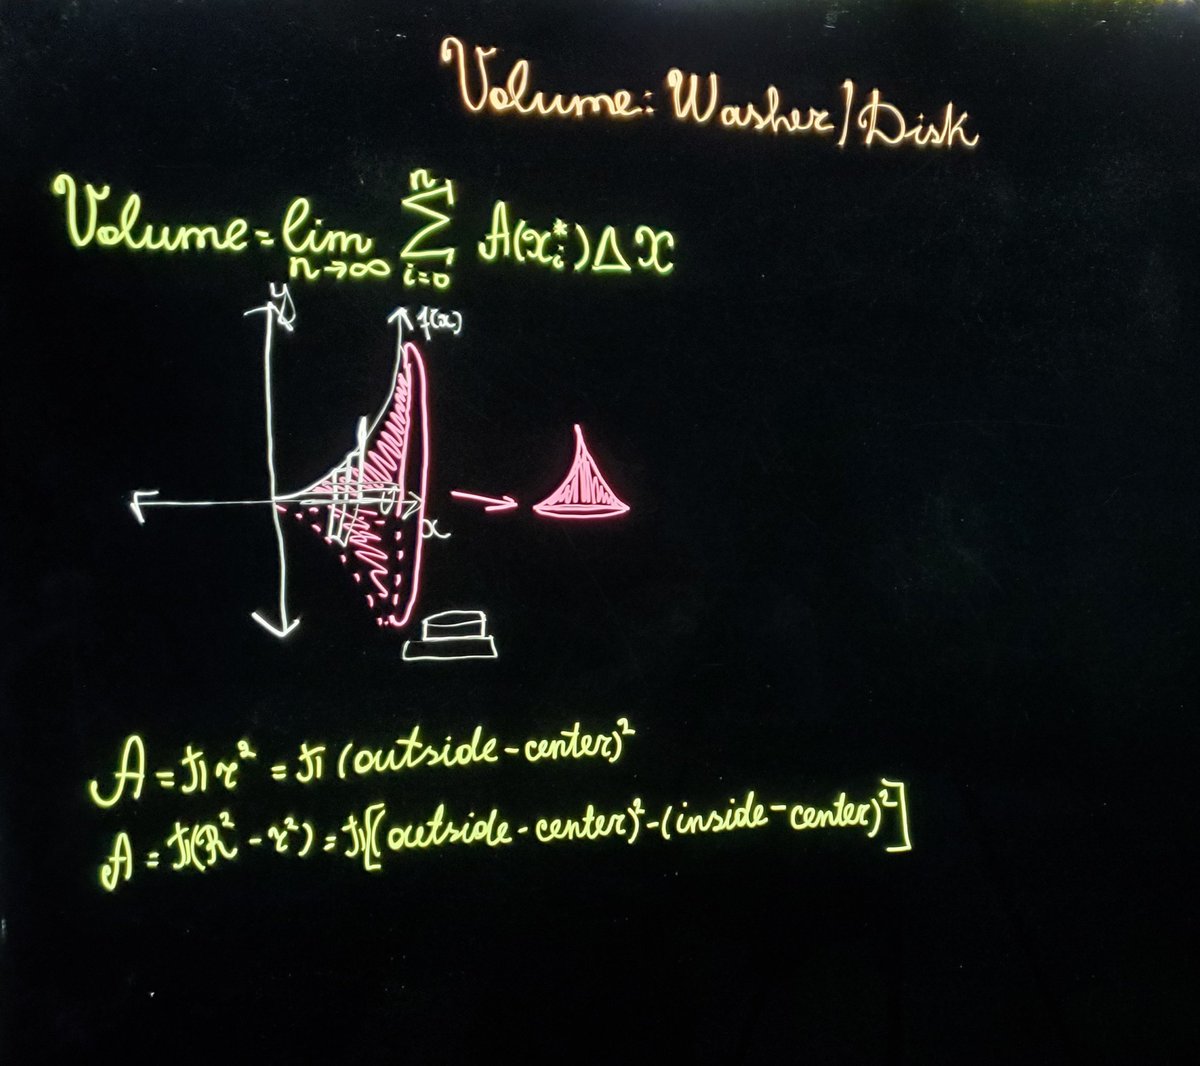 Volume: Washer/Disk
Volume = lim n→∞ n Σ i=0 A(x*i) Δx
y
f(x)
x
A = πr² = π (outside - center)²
A = π(R² - r²) = π[(outside - center)² - (inside - center)²]